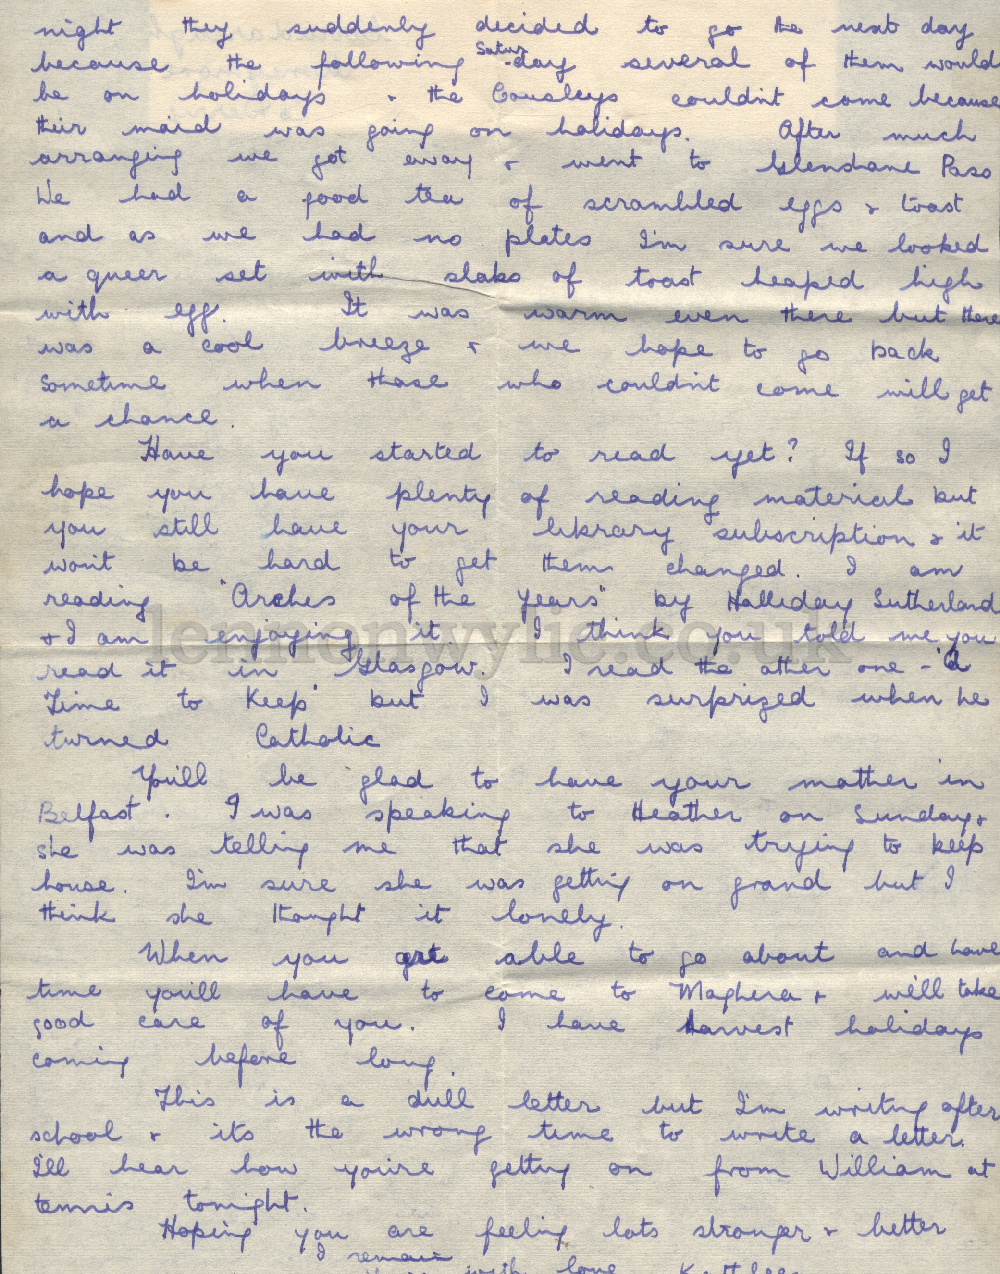 night they suddenly decided to go the next day
because the following Satur-day several of them would
be on holidays + the Cousleys couldn't come because
their maid was going on holidays. After much
arranging we got away + went to Glenshane Pass
We had a good tea of scrambled eggs + toast
and as we had no plates I'm sure we looked
a queer set with slabs of toast heaped high
with egg. It was warm even there but there
was a cool breeze + we hope to go back
sometime when those who couldn't come will get
a chance.
Have you started to read yet? If so I
hope you have plenty of reading material but
you still have your library subscription & it
won't be hard to get them changed. I am
reading "Arches of the Years" by Halliday Sutherland
& I am enjoying it. I think you told me you
read it in Glasgow. I read the other one - "A
Time to Keep" but I was surprized when he
turned Catholic
You'll be glad to have your mother in
Belfast. I was speaking to Heather on Sunday &
she was telling me that she was trying to keep
house. I'm sure she was getting on grand but I
think she thought it lonely.
When you get able to go about and have
time you'll have to come to Maghera & we'll take
good care of you. I have harvest holidays
coming before long.
This is a dull letter but I'm writing after
school & its the wrong time to write a letter.
I'll hear how you're getting on from William at
tennis tonight.
Hoping you are feeling lots stronger & better
I remain
with love
lemonwylie.co.uk